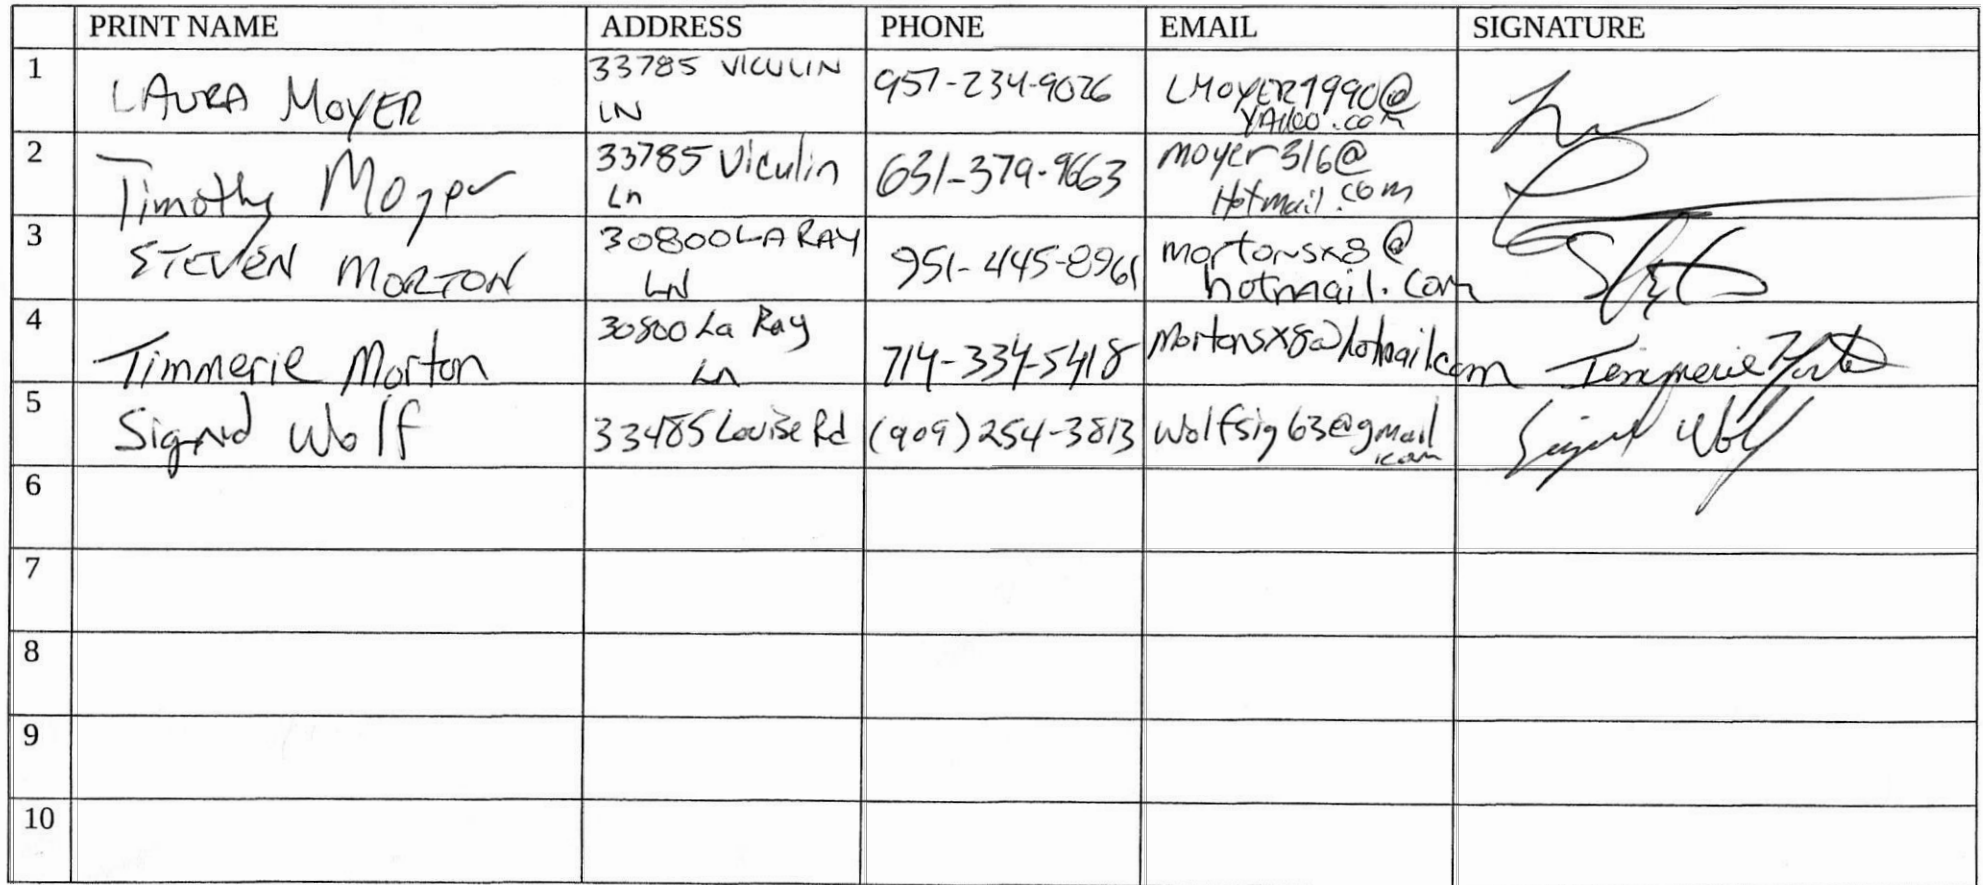 PRINT NAME ADDRESS PHONE EMAIL SIGNATURE
1 LAURA MOYER 33785 VICULIN LN 951-234-9026 LMOYER1990@YAHOO.COM
2 Timothy Moyer 33785 Viculin Ln 631-379-9663 moyer316@Hotmail.com
3 STEVEN MORTON 30800 LA RAY LN 951-445-8961 mortonsx8@hotmail.com
4 Timmerie Morton 30800 La Ray Ln 714-334-5418 Mortonsx8@hotmail.com Timmerie Morton
5 Sigrid Wolf 33485 Louise Rd (909) 254-3813 wolfsig63@gmail.com Sigrid Wolf
6
7
8
9
10